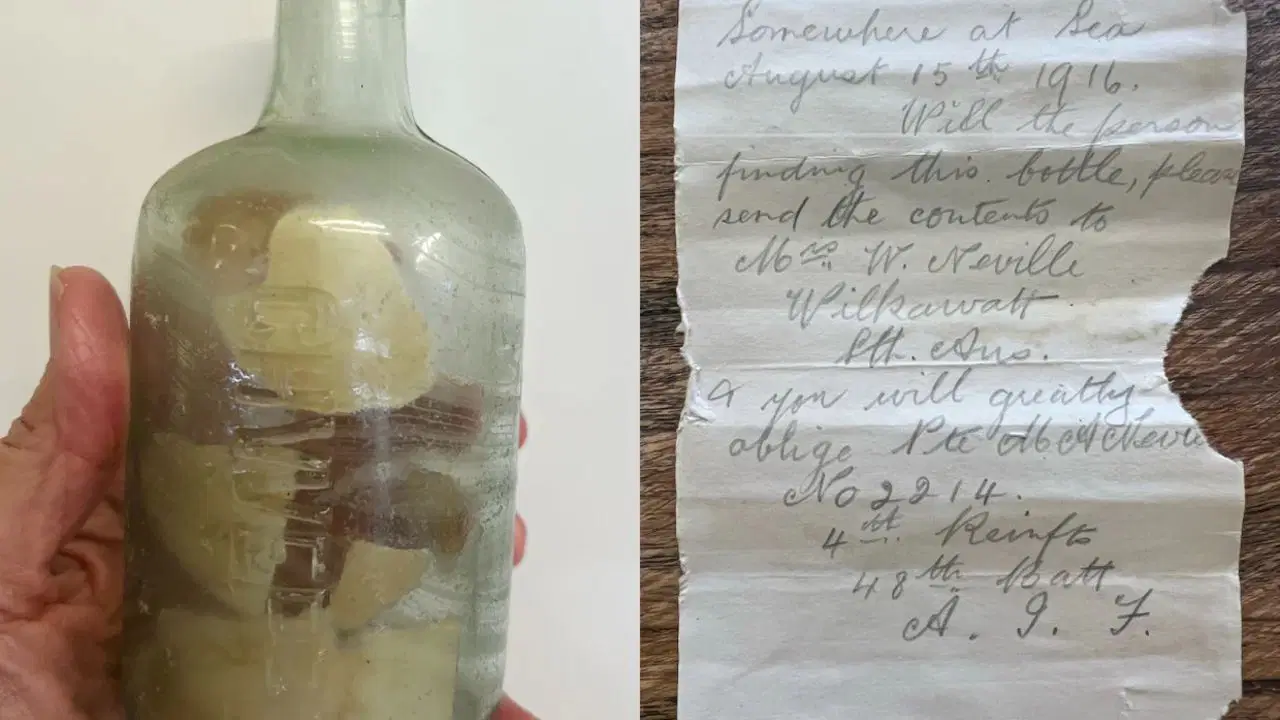 Somewhere at Sea
August 15th 1916.
Will the person
finding this bottle, please
send the contents to
Mrs. W. Neville
Wilkawatt
Sth. Aus.
& you will greatly
oblige Pte M A Nevi
No 2214.
4th Reinfts
48th Batt
A. I. F.